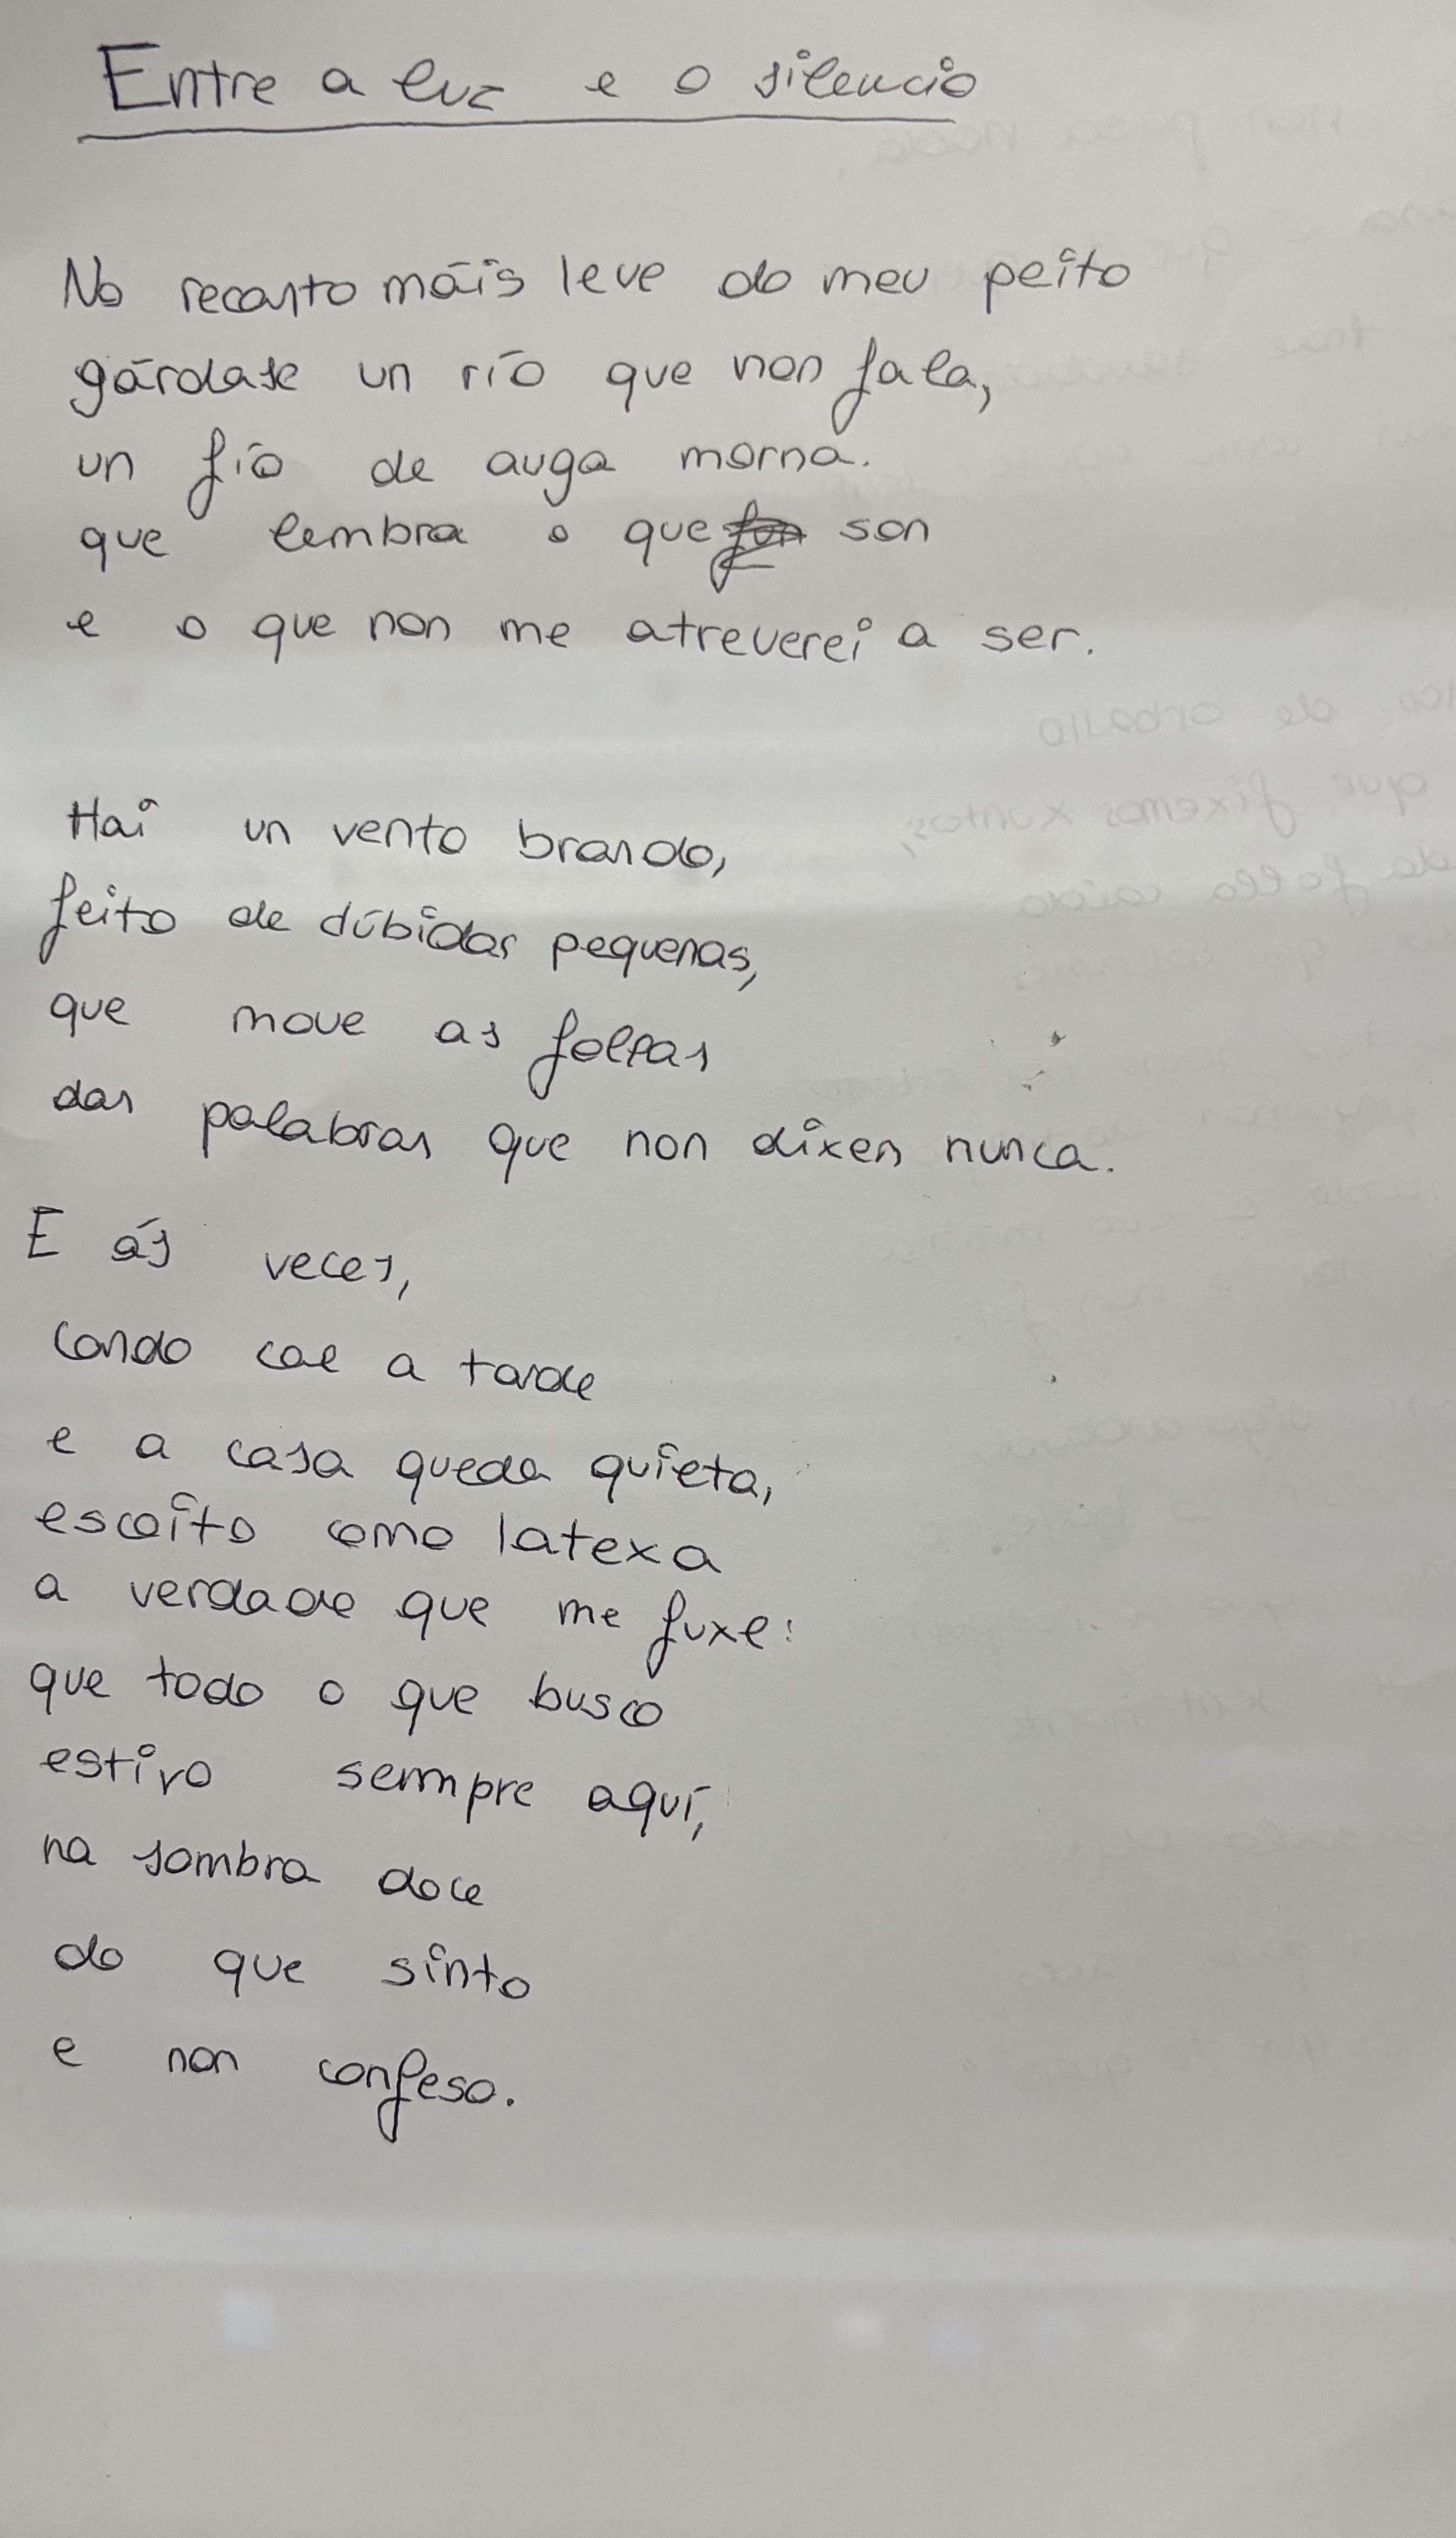 Entre a luz e o silencio
No recanto máis leve do meu peito
gárdase un río que non fala,
un fío de auga morna.
que lembra o que son
e o que non me atreverei a ser.
Hai un vento brando,
feito de dúbidas pequenas,
que move as follas
das palabras que non dixen nunca.
E ás veces,
cando cae a tarde
e a casa queda quieta,
escoito como latexa
a verdade que me fuxe:
que todo o que busco
estivo sempre aquí,
na sombra doce
do que sinto
e non confeso.